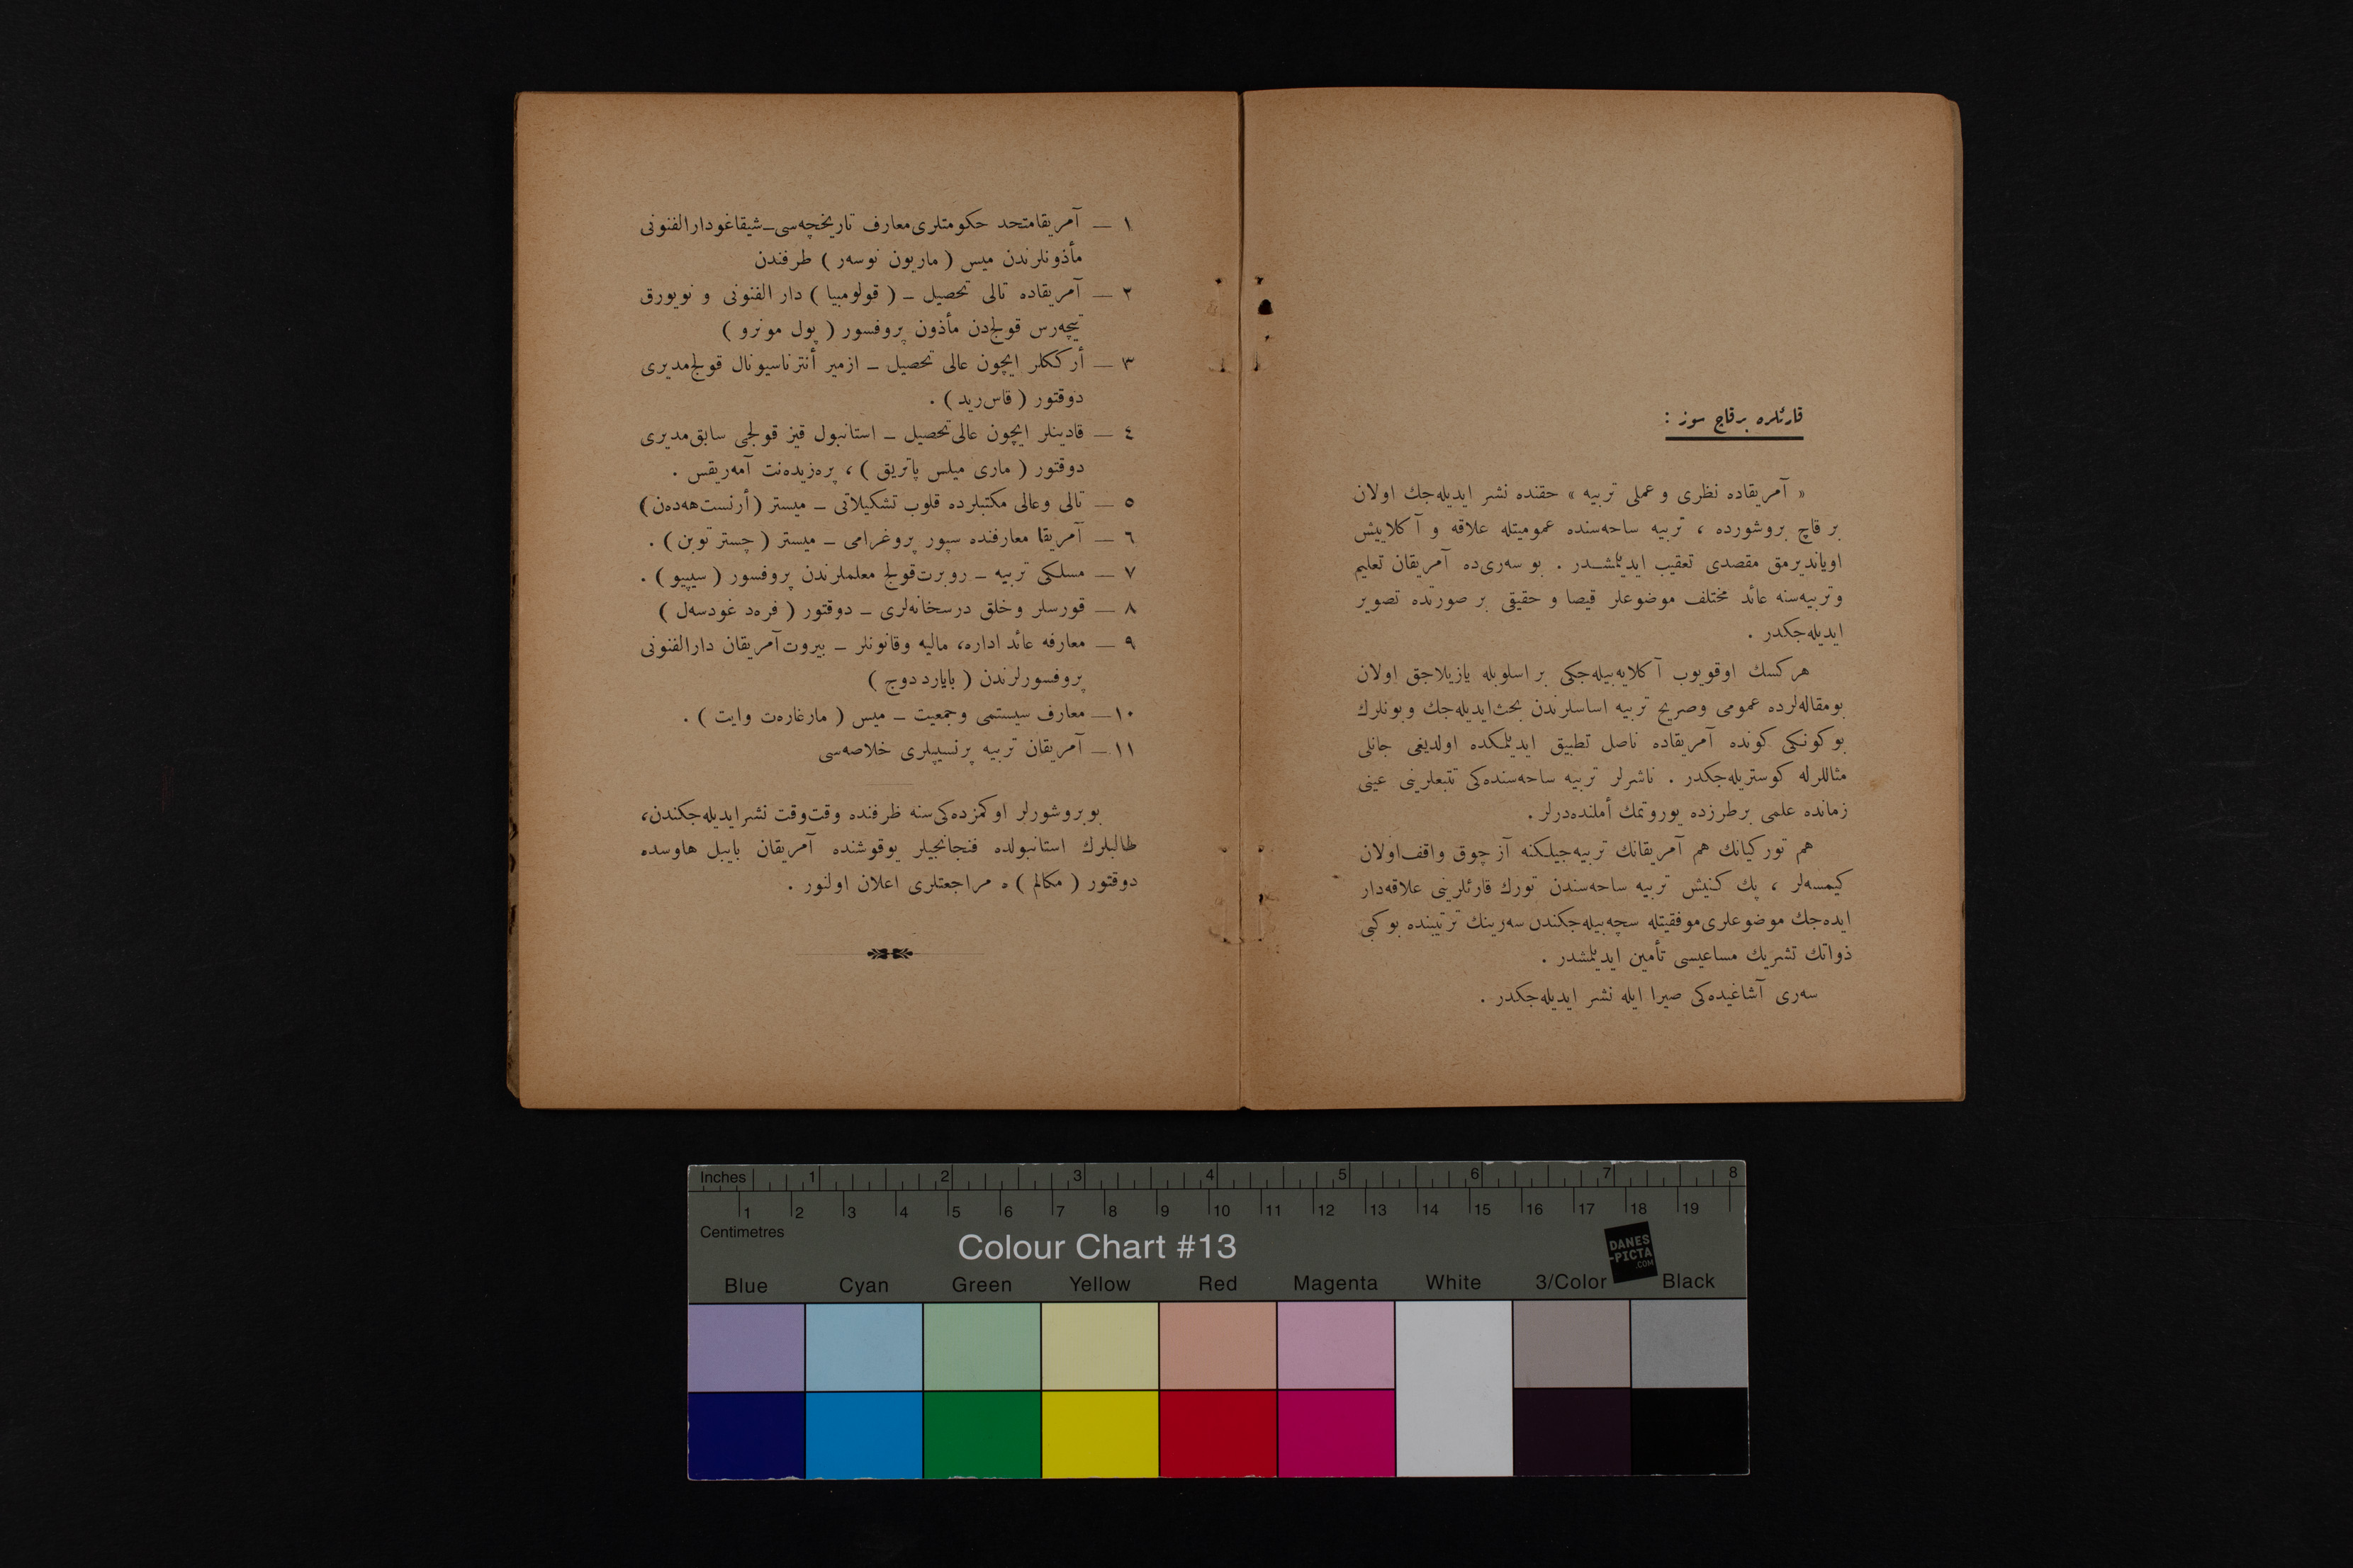 قارئلره بر قاچ سوز :
« آمریقاده نظری و عملی تربیه » حقنده نشر ایدیله‌جك اولان
بر قاچ بروشورده ، تربیه ساحه‌سنده عمومیتله علاقه و آ كلاییش
اویاندیرمق مقصدی تعقیب ایدیلمشـدر . بو سه‌ری‌ده آمریقان تعلیم
وتربیه‌سنه عائد مختلف موضوعلر قیصا و حقیقی بر صورتده تصویر
ایدیله‌جكدر .
هركسك اوقویوب آ كلایه‌بیله‌جكی بر اسلوبله یازیلاجق اولان
بومقاله‌لرده عمومی وصریح تربیه اساسلرندن بحث‌ایدیله‌جك وبونلرك
بوكونكی كونده آمریقاده ناصل تطبیق ایدیلمكده اولدیغی جانلی
مثاللرله كوستریله‌جكدر . ناشرلر تربیه ساحه‌سنده‌كی تتبعلرینی عینی
زمانده علمی برطرزده یوروتمك أملنده‌درلر .
هم توركیانك هم آمریقانك تربیه‌جیلكنه آز چوق واقف‌اولان
كیمسه‌لر ، پك كنیش تربیه ساحه‌سندن تورك قارئلرینی علاقه‌دار
ایده‌جك موضوعلری‌موفقیتله سچه‌بیله‌جكندن سه‌رینك ترتیبنده بو كبی
ذواتك تشریك مساعیسی تأمین ایدیلمشدر .
سه‌ری آشاغیده‌كی صیرا ایله نشر ایدیله‌جكدر .
١ — آمریقامتحد حكومتلری‌معارف تاریخچه‌سی–شیقاغودارالفنونی
مأذونلرندن میس ( ماریون نوسه‌ر ) طرفندن
٢ — آمریقاده تالی تحصیل – ( قولومبیا ) دار الفنونی و نویورق
تیچه‌رس قولج‌دن مأذون پروفسور ( پول مونرو )
٣ — أرككلر ایچون عالی تحصیل – ازمیر أنترناسیونال قولج‌مدیری
دوقتور ( قاس‌رید ) .
٤ — قادینلر ایچون عالی‌تحصیل – استانبول قیز قولجی سابق‌مدیری
دوقتور ( ماری میلس پاتریق ) ، پره‌زیده‌نت آمه‌ریقس .
٥ — تالی وعالی مكتبلرده قلوب تشكیلاتی – میستر ( أرنست‌هه‌ده‌ن )
٦ — آمریقا معارفنده سپور پروغرامی – میستر ( چستر توبن ) .
٧ — مسلكی تربیه – روبرت‌قولج معلملرندن پروفسور ( سیپیو ) .
٨ — قورسلر وخلق درسخانه‌لری – دوقتور ( فره‌د غودسه‌ل )
٩ — معارفه عائد اداره، مالیه وقانونلر – بیروت‌آمریقان دارالفنونی
پروفسورلرندن ( بایارد دوج )
١٠— معارف سیستمی وجمعیت – میس ( مارغاره‌ت وایت ) .
١١— آمریقان تربیه پرنسیپلری خلاصه‌سی
بوبروشورلر اوكمزده‌كی‌سنه ظرفنده وقت‌وقت نشرایدیله‌جكندن،
طالبلرك استانبولده فنجانجیلر یوقوشنده آمریقان بایبل هاوسده
دوقتور ( مكالم ) ه مراجعتلری اعلان اولنور .
Inches 1 2 3 4 5 6 7 8
1 2 3 4 5 6 7 8 9 10 11 12 13 14 15 16 17 18 19
Centimetres
Colour Chart #13
DANES
-PICTA
.COM
Blue Cyan Green Yellow Red Magenta White 3/Color Black